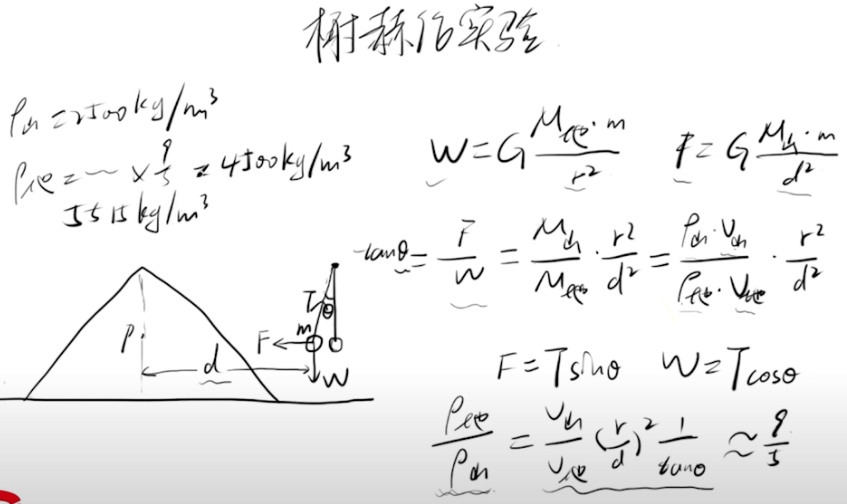 榭赫伦实验
ρ山 = 2500kg/m³
ρ地 = ~ × 9/5 = 4500kg/m³
5515kg/m³
W = G M地·m / r²
F = G M山·m / d²
tanθ = F/W = M山/M地 · r²/d² = ρ山·V山 / ρ地·V地 · r²/d²
F = Tsinθ W = Tcosθ
ρ地/ρ山 = V山/V地 (r/d)² 1/tanθ ≈ 9/5
P
d
T
θ
m
F
W